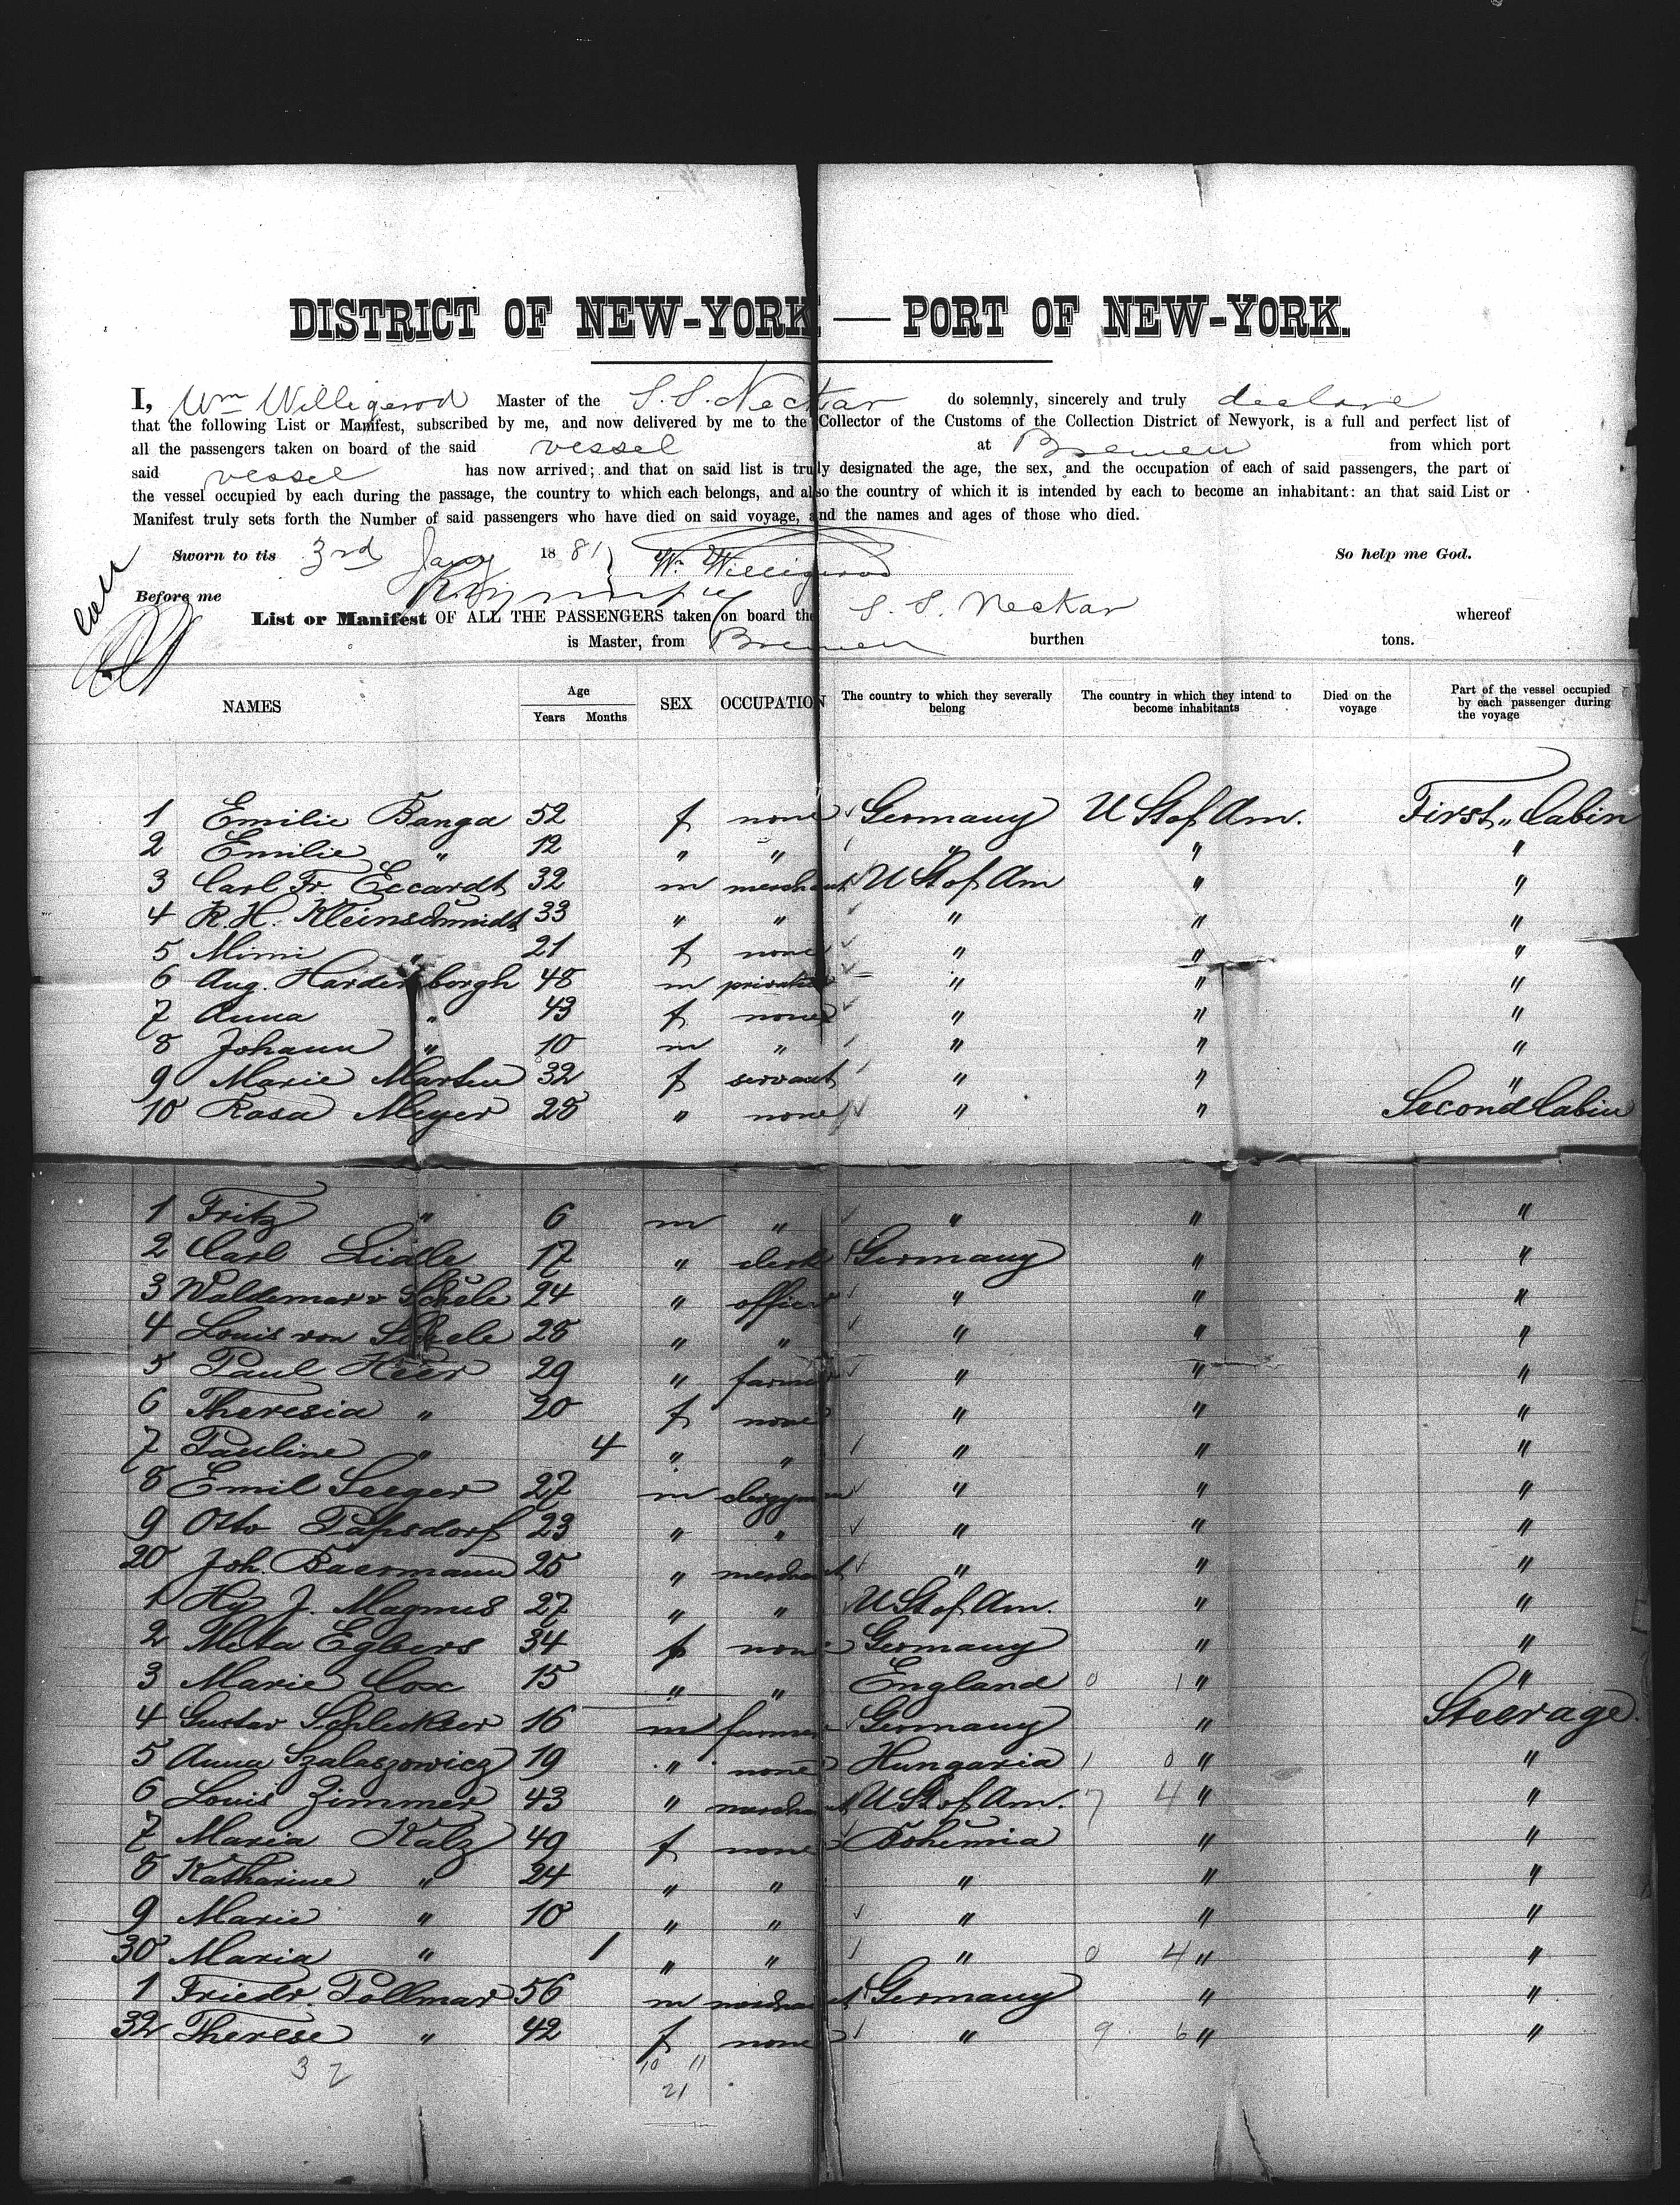 DISTRICT OF NEW-YORK — PORT OF NEW-YORK.
I, Wm Willigerod Master of the S.S. Neckar do solemnly, sincerely and truly declare
that the following List or Manifest, subscribed by me, and now delivered by me to the Collector of the Customs of the Collection District of Newyork, is a full and perfect list of
all the passengers taken on board of the said vessel at Bremen from which port
said vessel has now arrived; and that on said list is truly designated the age, the sex, and the occupation of each of said passengers, the part of
the vessel occupied by each during the passage, the country to which each belongs, and also the country of which it is intended by each to become an inhabitant: an that said List or
Manifest truly sets forth the Number of said passengers who have died on said voyage, and the names and ages of those who died.
Sworn to tis 3rd Jany 1881 Wm Willigerod So help me God.
Before me
List or Manifest OF ALL THE PASSENGERS taken on board the S. S. Neckar whereof
is Master, from Bremen burthen tons.
NAMES Age Years Months SEX OCCUPATION The country to which they severally belong The country in which they intend to become inhabitants Died on the voyage Part of the vessel occupied by each passenger during the voyage
1 Emilie Banga 52 f none Germany U St of Am. First Cabin
2 Emilie " 12 " " " " "
3 Carl Fr. Eccardt 32 m merchant U St of Am " "
4 R. H. Kleinschmidt 33 " " " " "
5 Mimi " 21 f none " " "
6 Aug. Hardenborgh 48 m privatier " " "
7 Anna " 43 f none " " "
8 Johann " 10 m " " " "
9 Marie Marten 32 f servant " " "
10 Rosa Meyer 28 " none " " Second Cabin
1 Fritz " 6 m " " " "
2 Carl Lidle 17 " clerk Germany " "
3 Waldemar v Scheele 24 " officer " " "
4 Louis von Scheele 28 " " " " "
5 Paul Heer 29 " farmer " " "
6 Theresia " 20 f none " " "
7 Pauline " 4 " " " " "
8 Emil Seeger 27 m clergyman " " "
9 Otto Papsdorf 23 " " " " "
20 Joh. Baermann 25 " merchant " " "
1 Hy J. Magnus 27 " " U St of Am. " "
2 Meta Egbers 34 f none Germany " "
3 Marie Cox 15 " " England 0 1 " "
4 Gustav Schlecker 16 m farmer Germany " Steerage.
5 Anna Szalaszowicz 19 " none Hungaria 1 0 " "
6 Louis Zimmer 43 " merchant U St of Am. 7 4 " "
7 Maria Kalz 49 f none Bohemia " "
8 Katharine " 24 " " " " "
9 Marie " 10 " " " " "
30 Maria " 1 " " " 0 4 " "
1 Friedr. Pollmar 56 m merchant Germany " "
32 Therese " 42 f none " 9 6 " "
32 10 11
21